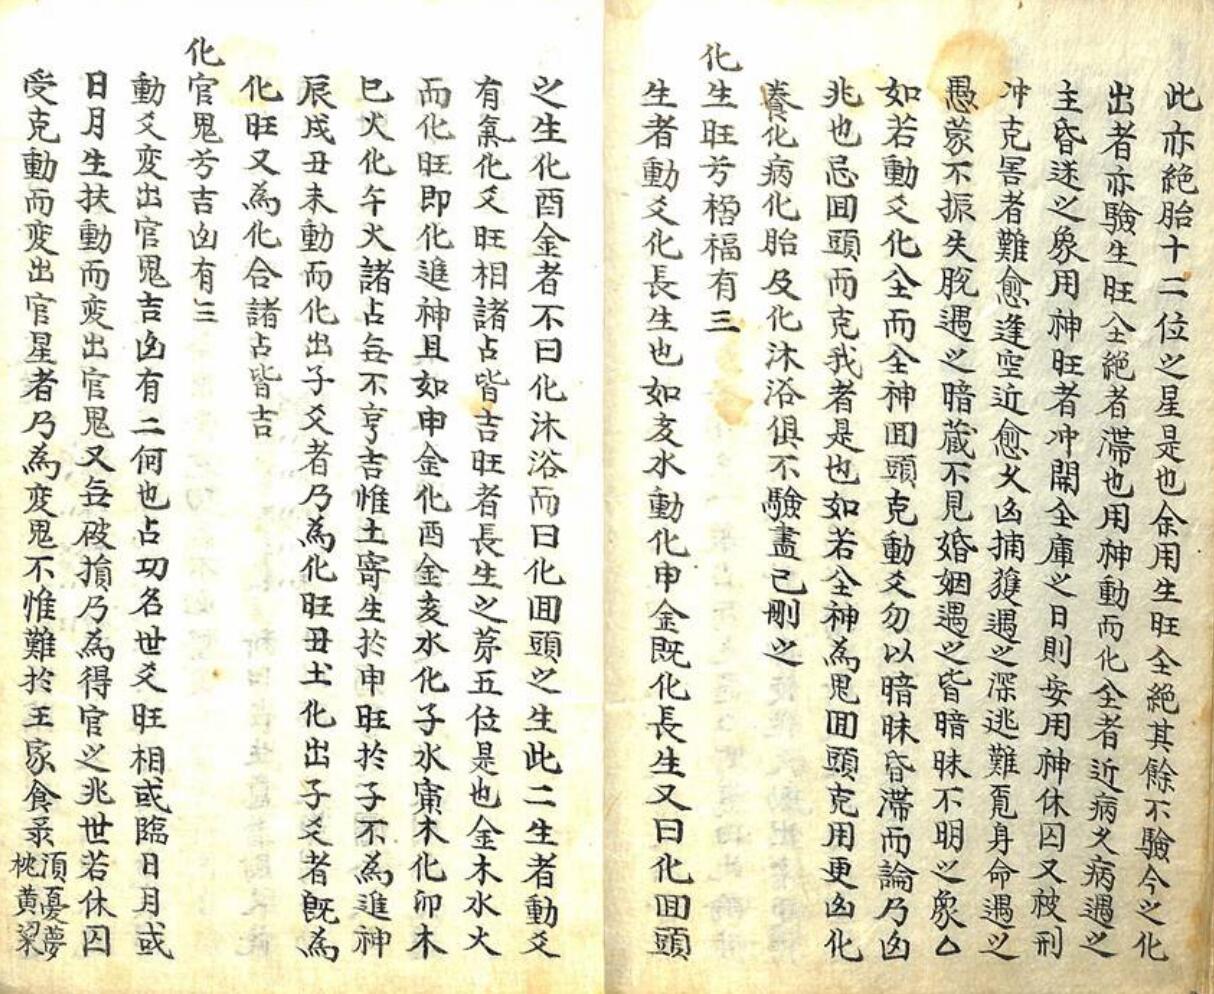 此亦絕胎十二位之星是也余用生旺仝絕其餘不驗今之化
出者亦驗生旺仝絕者滯也用神動而化仝者近病久病遇之
主昏迷之象用神旺者冲開仝庫之日則安用神休囚又被刑
冲克害者難愈逢空近愈久凶捕獲遇之深逃難覔身命遇之
愚蒙不振失脫遇之暗蔵不見婚姻遇之皆暗昧不明之象
如若動爻化仝而仝神囬頭克動爻勿以暗昧昏滯而論乃凶
兆也忌囬頭而克我者是也如若仝神為鬼囬頭克用更凶化
養化病化胎及化沐浴俱不驗盡已刪之
化生旺兮福有三
生者動爻化長生也如亥水動化申金既化長生又曰化囬頭
之生化酉金者不曰化沐浴而曰化囬頭之生此二生者動爻
有氣化爻旺相諸占皆吉旺者長生之苐五位是也金木水火
而化旺即化進神且如申金化酉金亥水化子水寅木化卯木
巳火化午火諸占每不亨吉惟土寄生於申旺於子不為進神
辰戌丑未動而化出子爻者乃為化旺丑土化出子爻者既為
化旺又為化合諸占皆吉
化官鬼兮吉凶有三
動爻变出官鬼吉凶有二何也占功名世爻旺相或臨日月或
日月生扶動而变出官鬼又無破損乃為得官之兆世若休囚
受克動而变出官星者乃為变鬼不惟難於王家食彔 須憂夢
枕黄粱